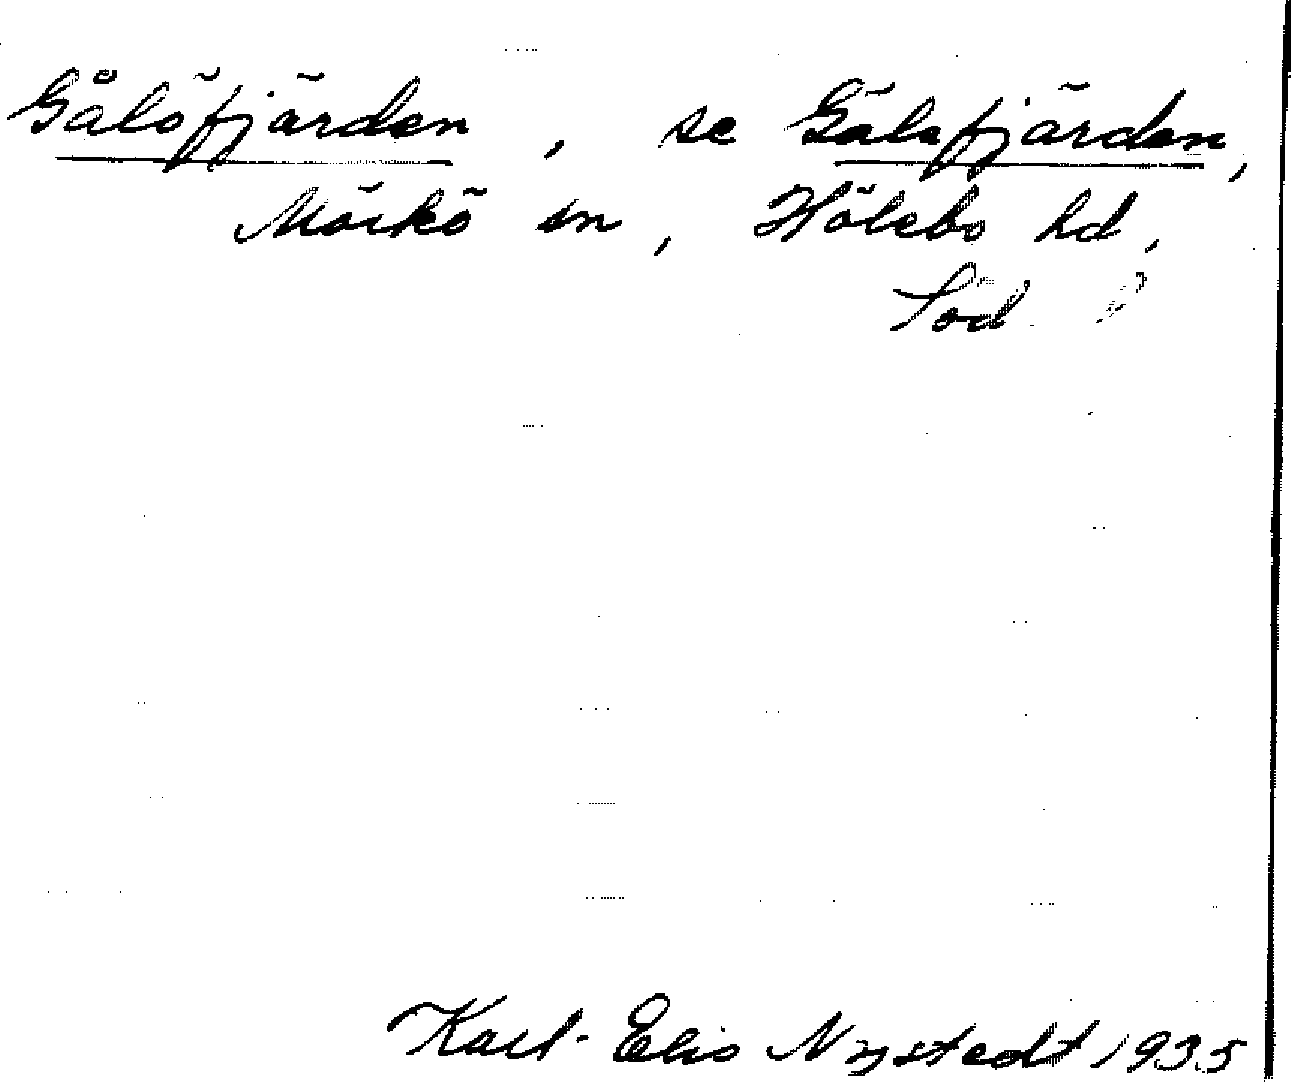 Gålöfjärden, se Gälafjärden,
Mörkö sn, Hölebo hd,
Söd
Karl-Elis Nystedt 1935